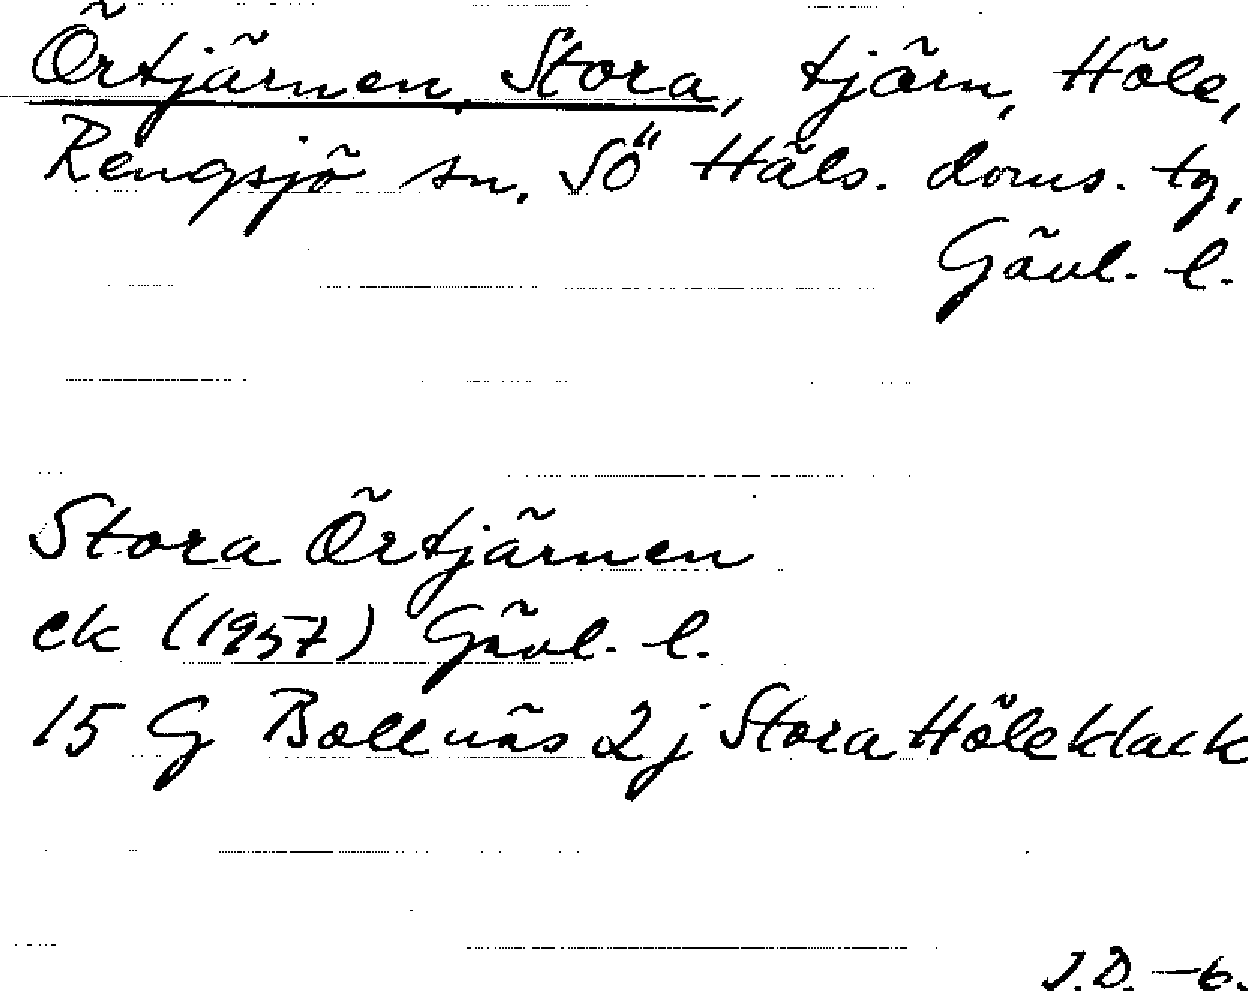 Örtjärnen, Stora, tjärn, Höle,
Rengsjö sn, SÖ Häls. doms. tg,
Gävl. l.
Stora Örtjärnen
ek (1957) Gävl. l.
15 G Bollnäs 2j Stora Höleklack
J.D. -6.